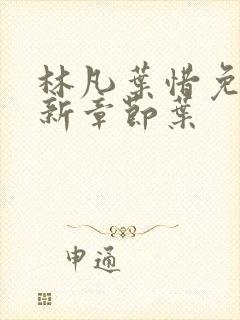 林凡葉惜免
新章節葉
申通